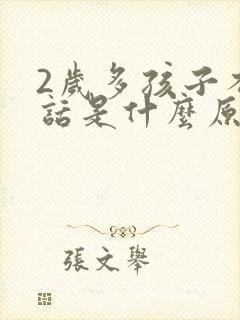 2歲多孩子
話是什麼原
張文舉